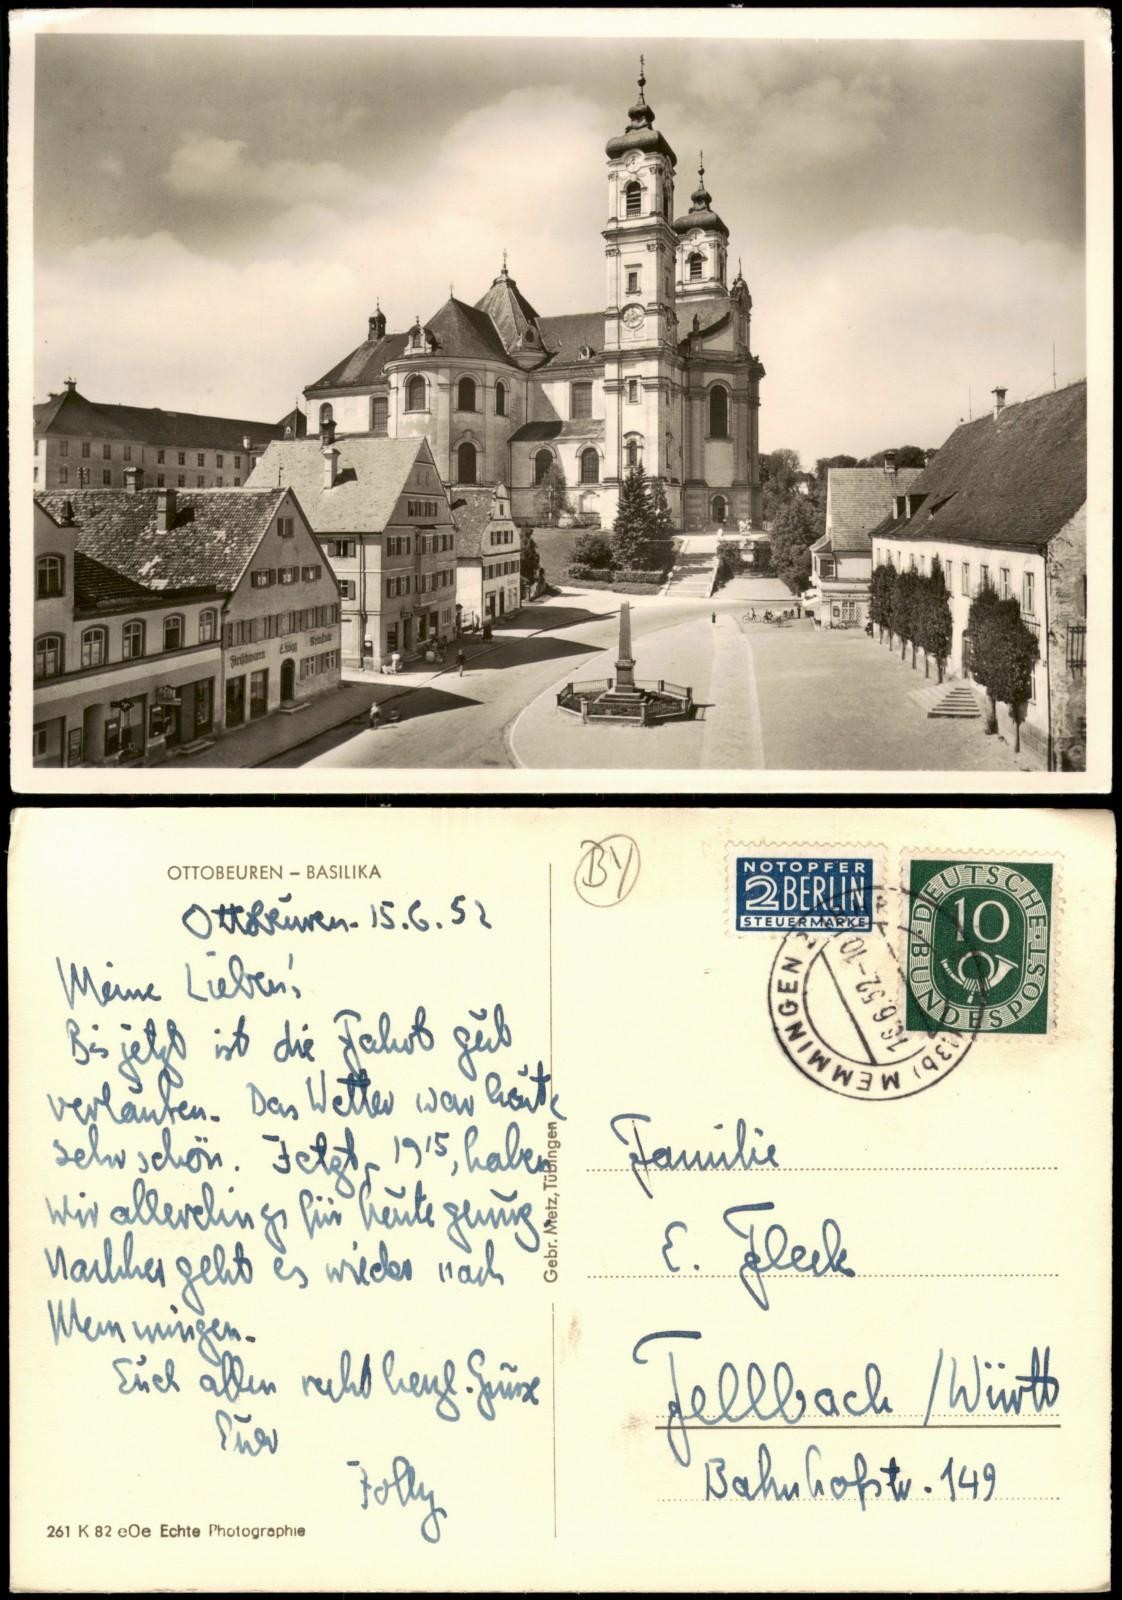 Fleischwaren
OTTOBEUREN – BASILIKA
Ottobeuren. 15.6.52
Meine Lieben!
Bis jetzt ist die Fahrt gut
verlaufen. Das Wetter war heute
sehr schön. Jetzt, 19¹⁵, haben
wir allerdings für heute genug.
Nachher geht es wieder nach
Memmingen.
Euch allen recht herzl. Grüsse
Euer
261 K 82 eOe Echte Photographie
Gebr. Metz, Tübingen
BY
NOTOPFER
2 BERLIN
STEUERMARKE
DEUTSCHE BUNDESPOST
10
(13b) MEMMINGEN
16.6.52.-10
Familie
E. Fleck
Fellbach /Württ
Bahnhofstr. 149